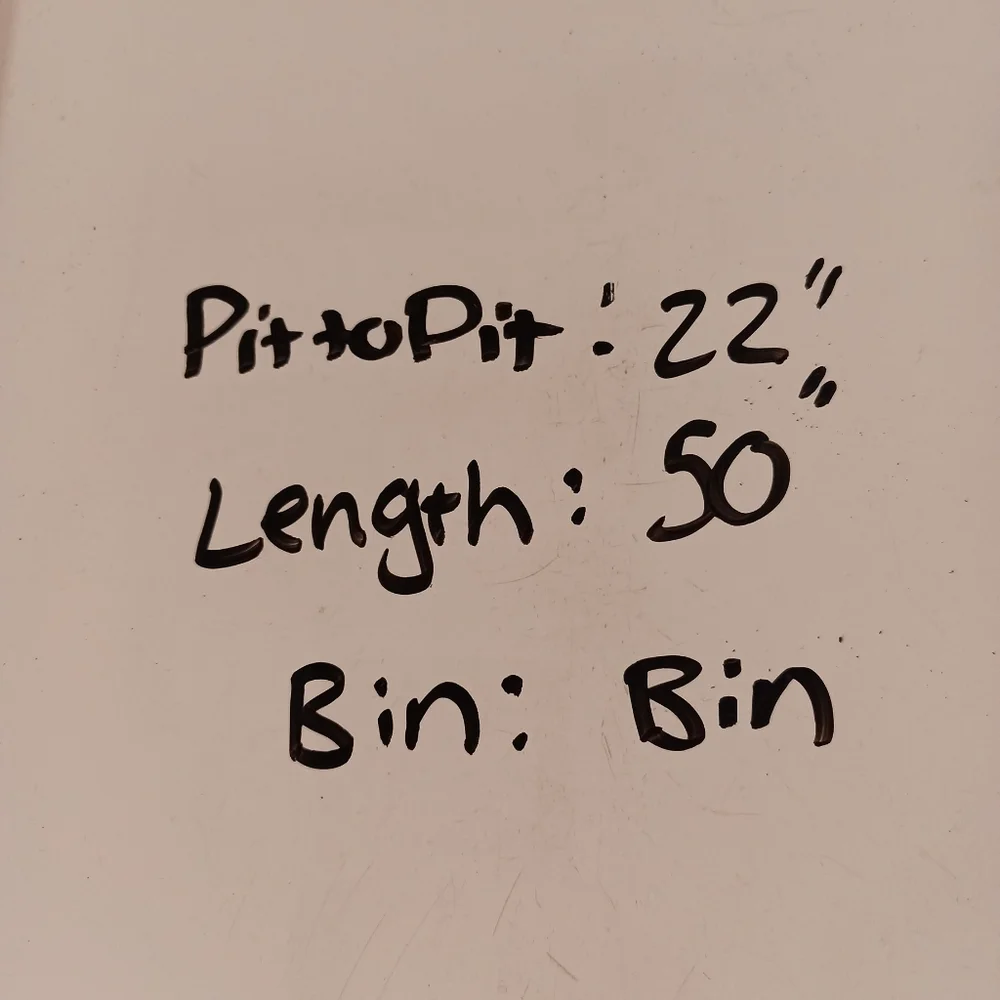 Pit to Pit : 22"
Length : 50"
Bin : Bin